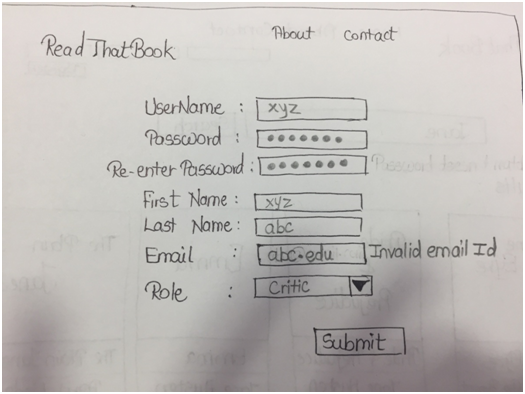 About contact
ReadThatBook
UserName : xyz
Password : •••••••
Re-enter Password : •••••••
First Name : xyz
Last Name : abc
Email : abc.edu Invalid email Id
Role : Critic
Submit